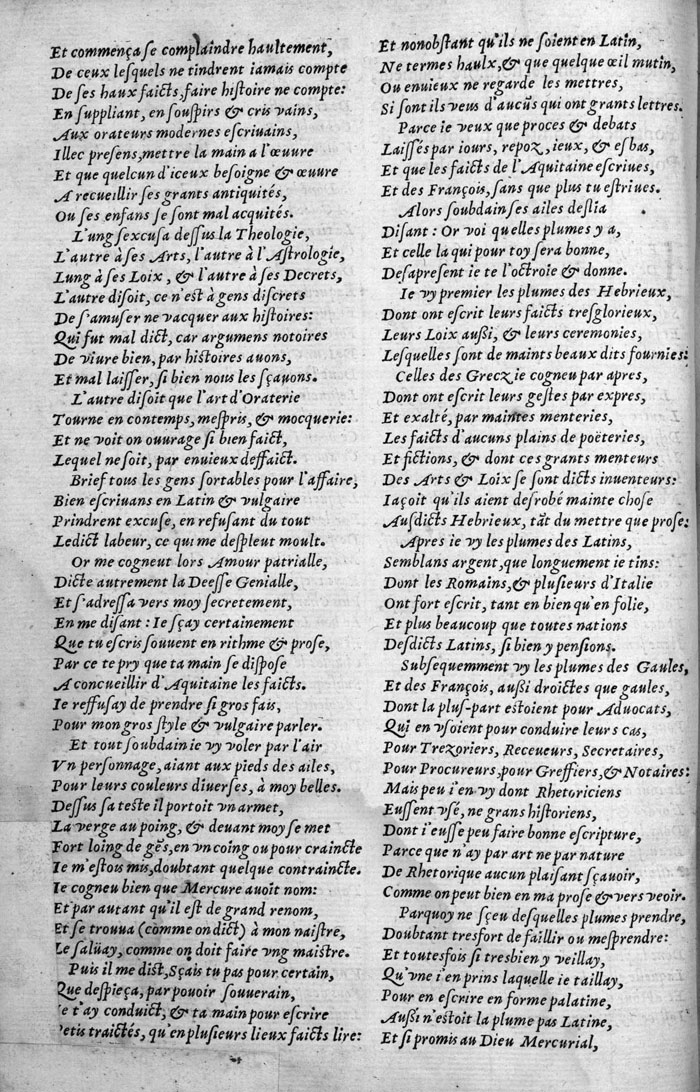 Et commença se complaindre haultement,
De ceux lesquels ne tindrent iamais compte
De ses haux faicts, faire histoire ne compte:
En suppliant, en souspirs & cris vains,
Aux orateurs modernes escriuains,
Illec presens, mettre la main a l'œuure
Et que quelcun d'iceux besoigne & œuure
A recueillir ses grants antiquités,
Ou ses enfans se sont mal acquités.
L'ung s'excusa dessus la Theologie,
L'autre à ses Arts, l'autre à l'Astrologie,
Lung à ses Loix, & l'autre à ses Decrets,
L'autre disoit, ce n'est à gens discrets
De s'amuser ne vacquer aux histoires:
Qui fut mal dict, car argumens notoires
De viure bien, par histoires auons,
Et mal laisser, si bien nous les sçauons.
L'autre disoit que l'art d'Oraterie
Tourne en contemps, mespris, & mocquerie:
Et ne voit on ouurage si bien faict,
Lequel ne soit, par enuieux deffaict.
Brief tous les gens sortables pour l'affaire,
Bien escriuans en Latin & vulgaire
Prindrent excuse, en refusant du tout
Ledict labeur, ce qui me despleut moult.
Or me cogneut lors Amour patrialle,
Dicte autrement la Deesse Genialle,
Et s'adressa vers moy secretement,
En me disant: Ie sçay certainement
Que tu escris souuent en rithme & prose,
Par ce te pry que ta main se dispose
A concueillir d'Aquitaine les faicts.
Ie reffusay de prendre si gros fais,
Pour mon gros style & vulgaire parler.
Et tout soubdain ie vy voler par l'air
Vn personnage, aiant aux pieds des ailes,
Pour leurs couleurs diuerses, à moy belles.
Dessus sa teste il portoit vn armet,
La verge au poing, & deuant moy se met
Fort loing de gẽs, en vn coing ou pour craincte
Ie m'estois mis, doubtant quelque contraincte.
Ie cogneu bien que Mercure auoit nom:
Et par autant qu'il est de grand renom,
Et se trouua (comme on dict) à mon naistre,
Le salüay, comme on doit faire vng maistre.
Puis il me dist, Sçais tu pas pour certain,
Que despieça, par pouoir souuerain,
e t'ay conduict, & ta main pour escrire
etis traictés, qu'en plusieurs lieux faicts lire:
Et nonobstant qu'ils ne soient en Latin,
Ne termes haulx, & que quelque œil mutin,
Ou enuieux ne regarde les mettres,
Si sont ils veus d'aucũs qui ont grants lettres.
Parce ie veux que proces & debats
Laissés par iours, repoz, ieux, & esbas,
Et que les faicts de l'Aquitaine escriues,
Et des François, sans que plus tu estriues.
Alors soubdain ses ailes deslia
Disant: Or voi quelles plumes y a,
Et celle la qui pour toy sera bonne,
Desapresent ie te l'octroie & donne.
Ie vy premier les plumes des Hebrieux,
Dont ont escrit leurs faicts tresglorieux,
Leurs Loix aussi, & leurs ceremonies,
Lesquelles sont de maints beaux dits fournies:
Celles des Grecz ie cogneu par apres,
Dont ont escrit leurs gestes par expres,
Et exalté, par maintes menteries,
Les faicts d'aucuns plains de poëteries,
Et fictions, & dont ces grants menteurs
Des Arts & Loix se sont dicts inuenteurs:
Iaçoit qu'ils aient desrobé mainte chose
Ausdicts Hebrieux, tãt du mettre que prose:
Apres ie vy les plumes des Latins,
Semblans argent, que longuement ie tins:
Dont les Romains, & plusieurs d'Italie
Ont fort escrit, tant en bien qu'en folie,
Et plus beaucoup que toutes nations
Desdicts Latins, si bien y pensions.
Subsequemment vy les plumes des Gaules,
Et des François, aussi droictes que gaules,
Dont la plus-part estoient pour Aduocats,
Qui en vsoient pour conduire leurs cas,
Pour Trezoriers, Receueurs, Secretaires,
Pour Procureurs, pour Greffiers, & Notaires:
Mais peu i'en vy dont Rhetoriciens
Eussent vsé, ne grans historiens,
Dont i'eusse peu faire bonne escripture,
Parce que n'ay par art ne par nature
De Rhetorique aucun plaisant sçauoir,
Comme on peut bien en ma prose & vers veoir.
Parquoy ne sçeu desquelles plumes prendre,
Doubtant tresfort de faillir ou mesprendre:
Et toutesfois si tresbien y veillay,
Qu'vne i'en prins laquelle ie taillay,
Pour en escrire en forme palatine,
Aussi n'estoit la plume pas Latine,
Et si promis au Dieu Mercurial,